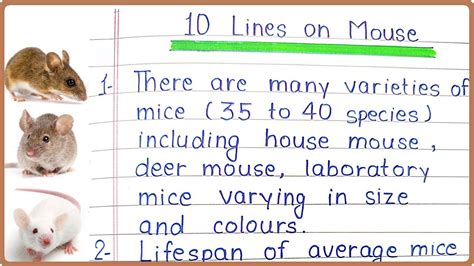 10 Lines on Mouse
1- There are many varieties of
mice (35 to 40 species)
including house mouse,
deer mouse, laboratory
mice varying in size
and colours.
2- Lifespan of average mice